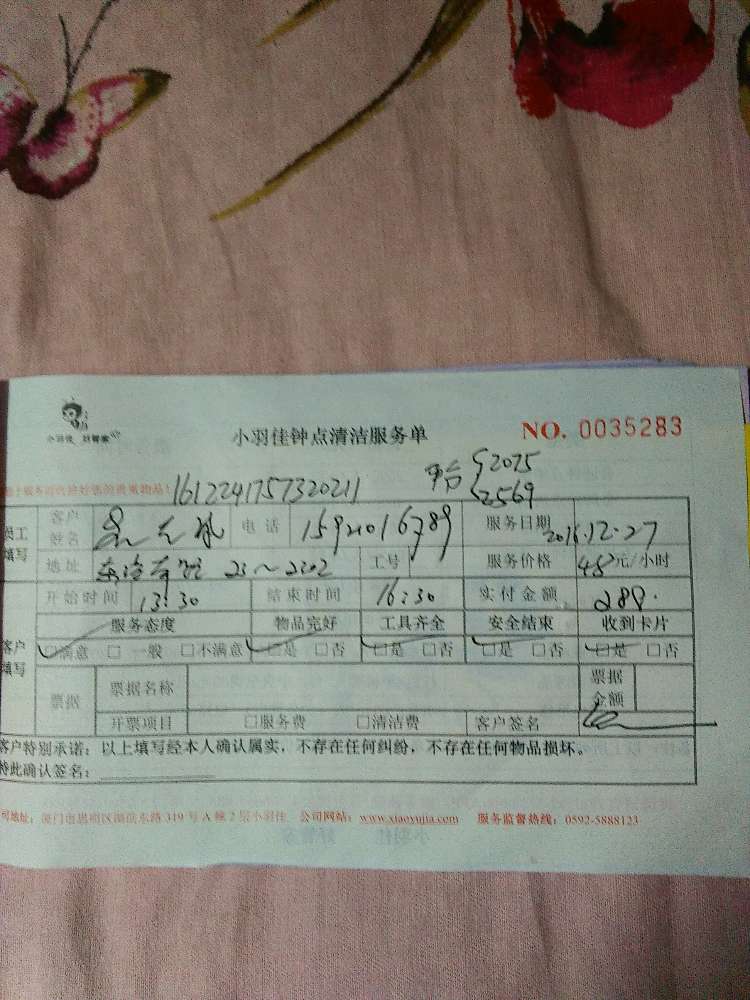 小羽佳 好管家
小羽佳钟点清洁服务单
NO. 0035283
1612241757320211
52025
52569
员工填写
客户姓名
电话 15921016789
服务日期 2016.12.27
地址 23~2302
工号
服务价格 48元/小时
开始时间 13:30
结束时间 16:30
实付金额 288.
客户填写
服务态度 物品完好 工具齐全 安全结束 收到卡片
☑满意 □一般 □不满意 ☑是 □否 ☑是 □否 ☑是 □否 ☑是 □否
票据 票据名称 票据金额
开票项目 □服务费 □清洁费 客户签名
客户特别承诺：以上填写经本人确认属实，不存在任何纠纷，不存在任何物品损坏。
特此确认签名：
司地址：厦门市思明区湖滨东路319号A幢2层小羽佳 公司网站：www.xiaoyujia.com 服务监督热线：0592-5888123